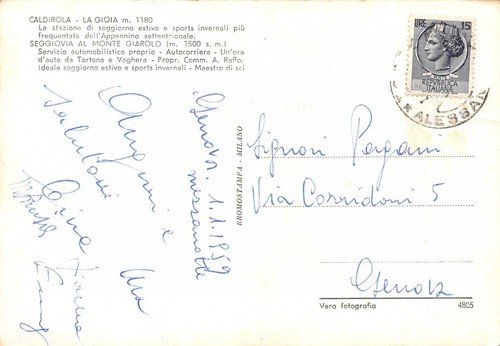 CALDIROLA - LA GIOIA m. 1180
La stazione di soggiorno estivo e sports invernali più
frequentata dell'Appennino settentrionale.
SEGGIOVIA AL MONTE GIAROLO (m. 1500 s. m.)
Servizio automobilistico proprio - Autocorriera - Un'ora
d'auto da Tortona e Voghera - Propr. Comm. A. Raffo.
Ideale soggiorno estivo e sports invernali - Maestro di sci
LIRE 15
REPUBBLICA
ITALIANA
ALESSAN
Genova 1.1.1959
Auguri e
saluti
BROMOSTAMPA - MILANO
Signori Pagani
Via Corridoni 5
Genova
Vera fotografia 4805